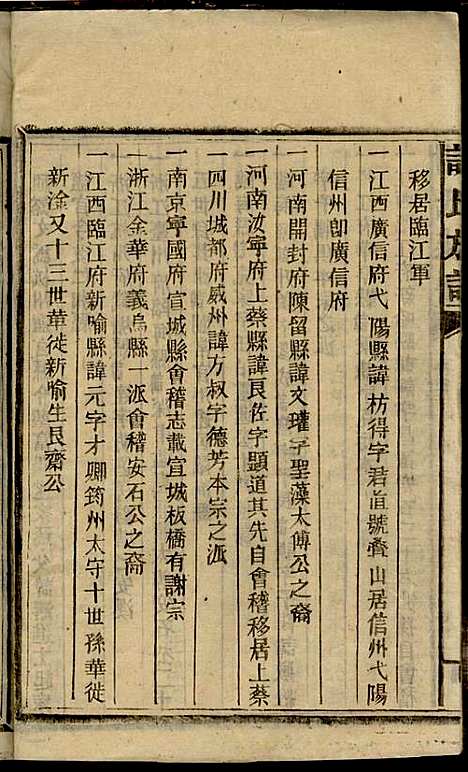 移居臨江軍
一江西廣信府弋陽縣諱枋得字君直號疊山居信州弋陽
信州卽廣信府
一河南開封府陳留縣諱文瓘字聖藻太傅公之裔
一河南汝寧府上蔡縣諱良佐字顯道其先自會稽移居上蔡
一四川城都府威州諱方叔字德芳本宗之派
一南京寧國府宣城縣會稽志載宣城板橋有謝宗
一浙江金華府義烏縣一派會稽安石公之裔
一江西臨江府新喻縣諱元字才卿筠州太守十世孫華徙
新淦又十三世華徙新喻生艮齋公